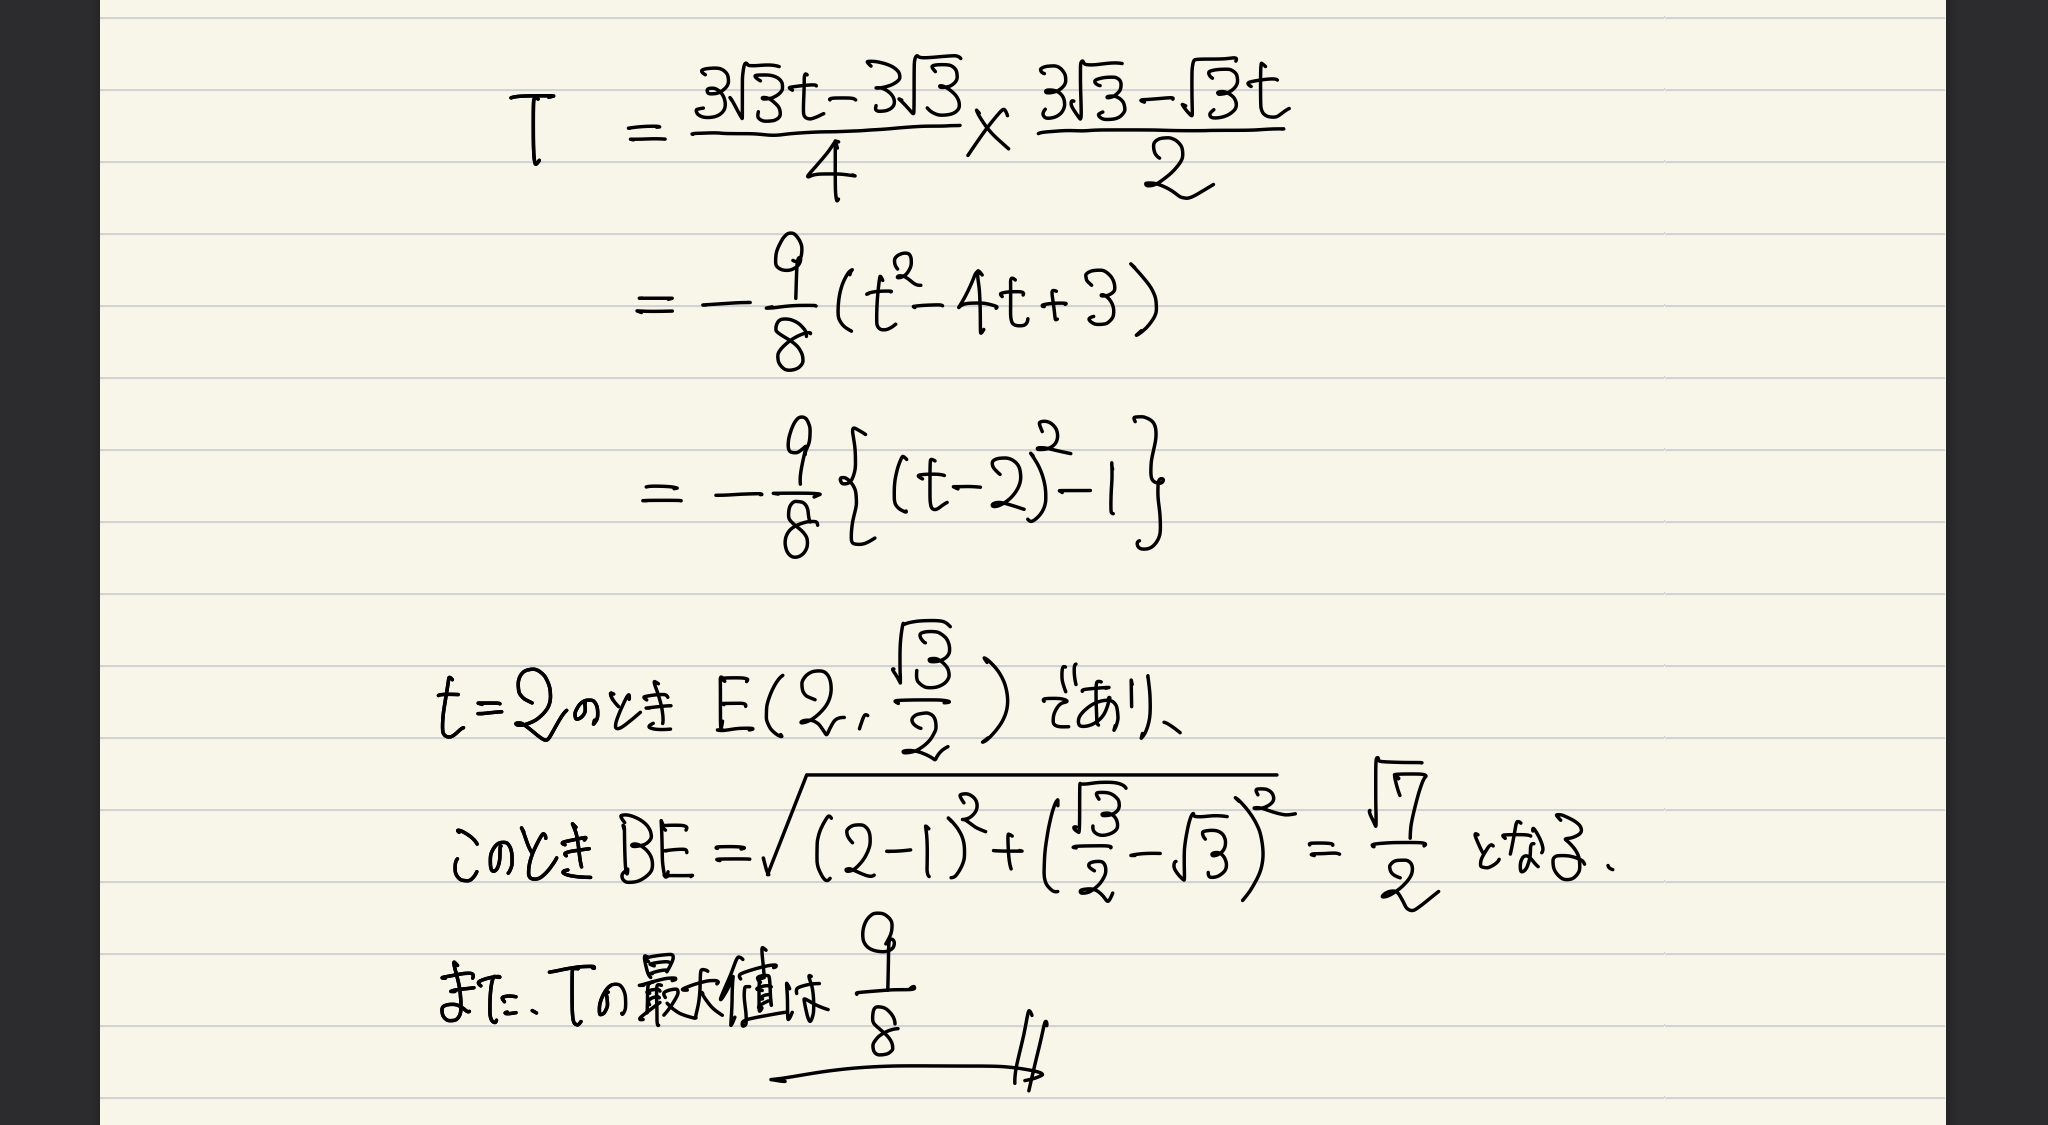 T = \frac{3\sqrt{3}t-3\sqrt{3}}{4} × \frac{3\sqrt{3}-\sqrt{3}t}{2}
= -\frac{9}{8}(t^2-4t+3)
= -\frac{9}{8}{(t-2)^2-1}
t=2のとき E(2, \frac{\sqrt{3}}{2}) であり、
このとき BE = \sqrt{(2-1)^2+(\frac{\sqrt{3}}{2}-\sqrt{3})^2} = \frac{\sqrt{7}}{2} となる.
また. Tの最大値は \frac{9}{8}